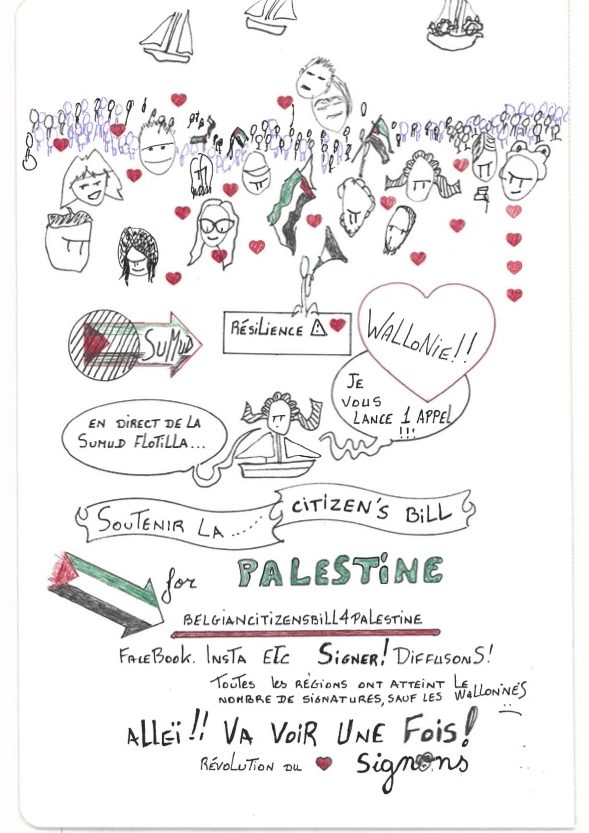 SUMUD
RÉSILIENCE
WALLONIE!!
JE
VOUS
LANCE 1 APPEL
!!!
EN DIRECT DE LA
SUMUD FLOTILLA...
SOUTENIR LA ......
CITIZEN'S BILL
for PALESTINE
BELGIANCITIZENSBILL4PALESTINE
FACEBOOK. INSTA ETC SIGNER! DIFFUSONS!
TOUTES les RÉGIONS ONT ATTEINT LE
NOMBRE DE SIGNATURES, SAUF LES WALLON·NE·S
ALLEÏ!! VA VOIR UNE FOIS!
RÉVOLUTION DU ❤ signons